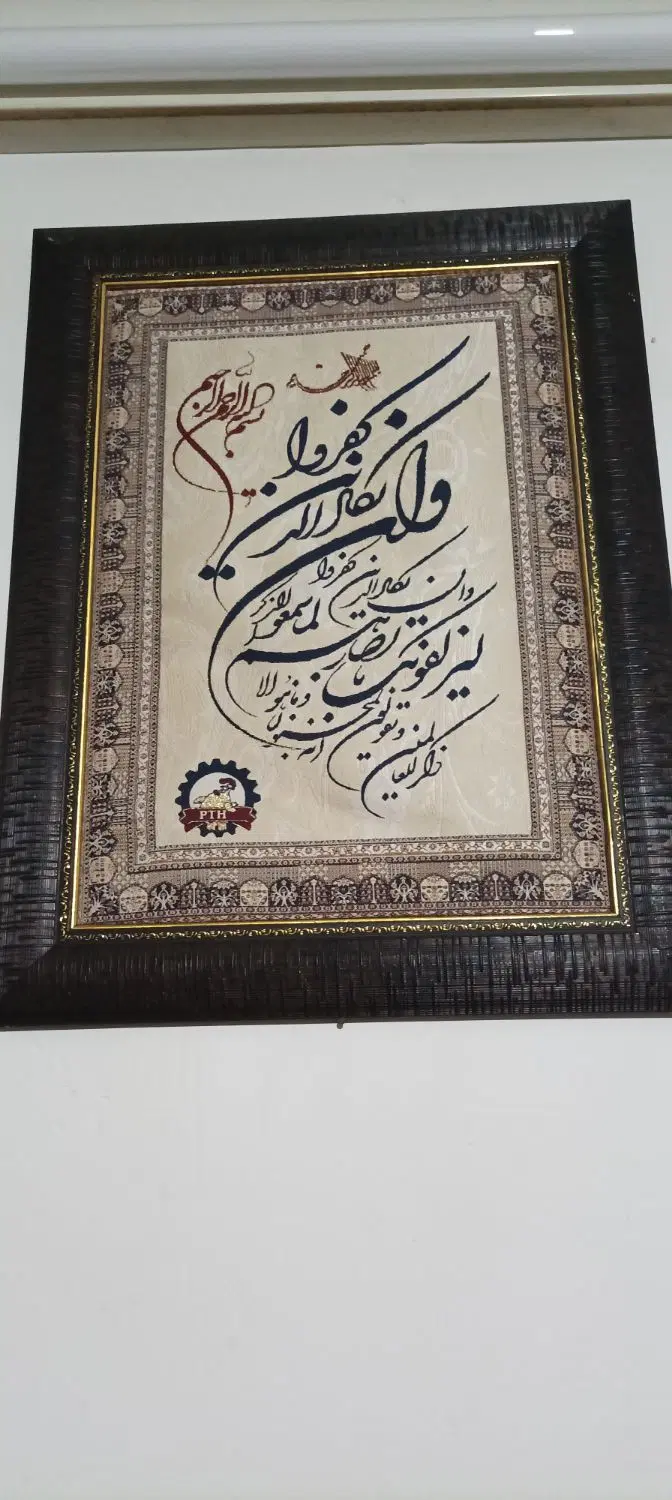 بسم الله الرحمن الرحیم
وان یکاد الذین کفروا
وان یکاد الذین کفروا
لیزلقونک بابصارهم
لما سمعوا الذکر
و یقولون انه لمجنون
و ما هو الا
ذکر للعالمین
PTH